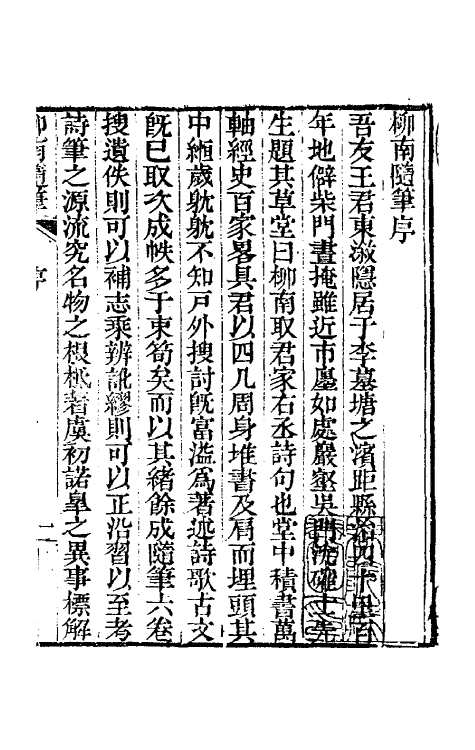 柳南隨筆序
吾友王君東漵隱居于李墓塘之濱距縣治四十里百
年地僻柴門晝掩雖近市廛如處巖壑吳門沈確士先
生題其草堂曰柳南取君家右丞詩句也堂中積書萬
軸經史百家畧具君以四几周身堆書及肩而埋頭其
中緬歲躭躭不知戸外搜討旣富溢爲著述詩歌古文
旣已取次成帙多于東筍矣而以其緒餘成隨筆六卷
搜遺佚則可以補志乘辨訛繆則可以正沿習以至考
詩筆之源流究名物之根柢著虞初諾臯之異事標解
柳南隨筆 序 二